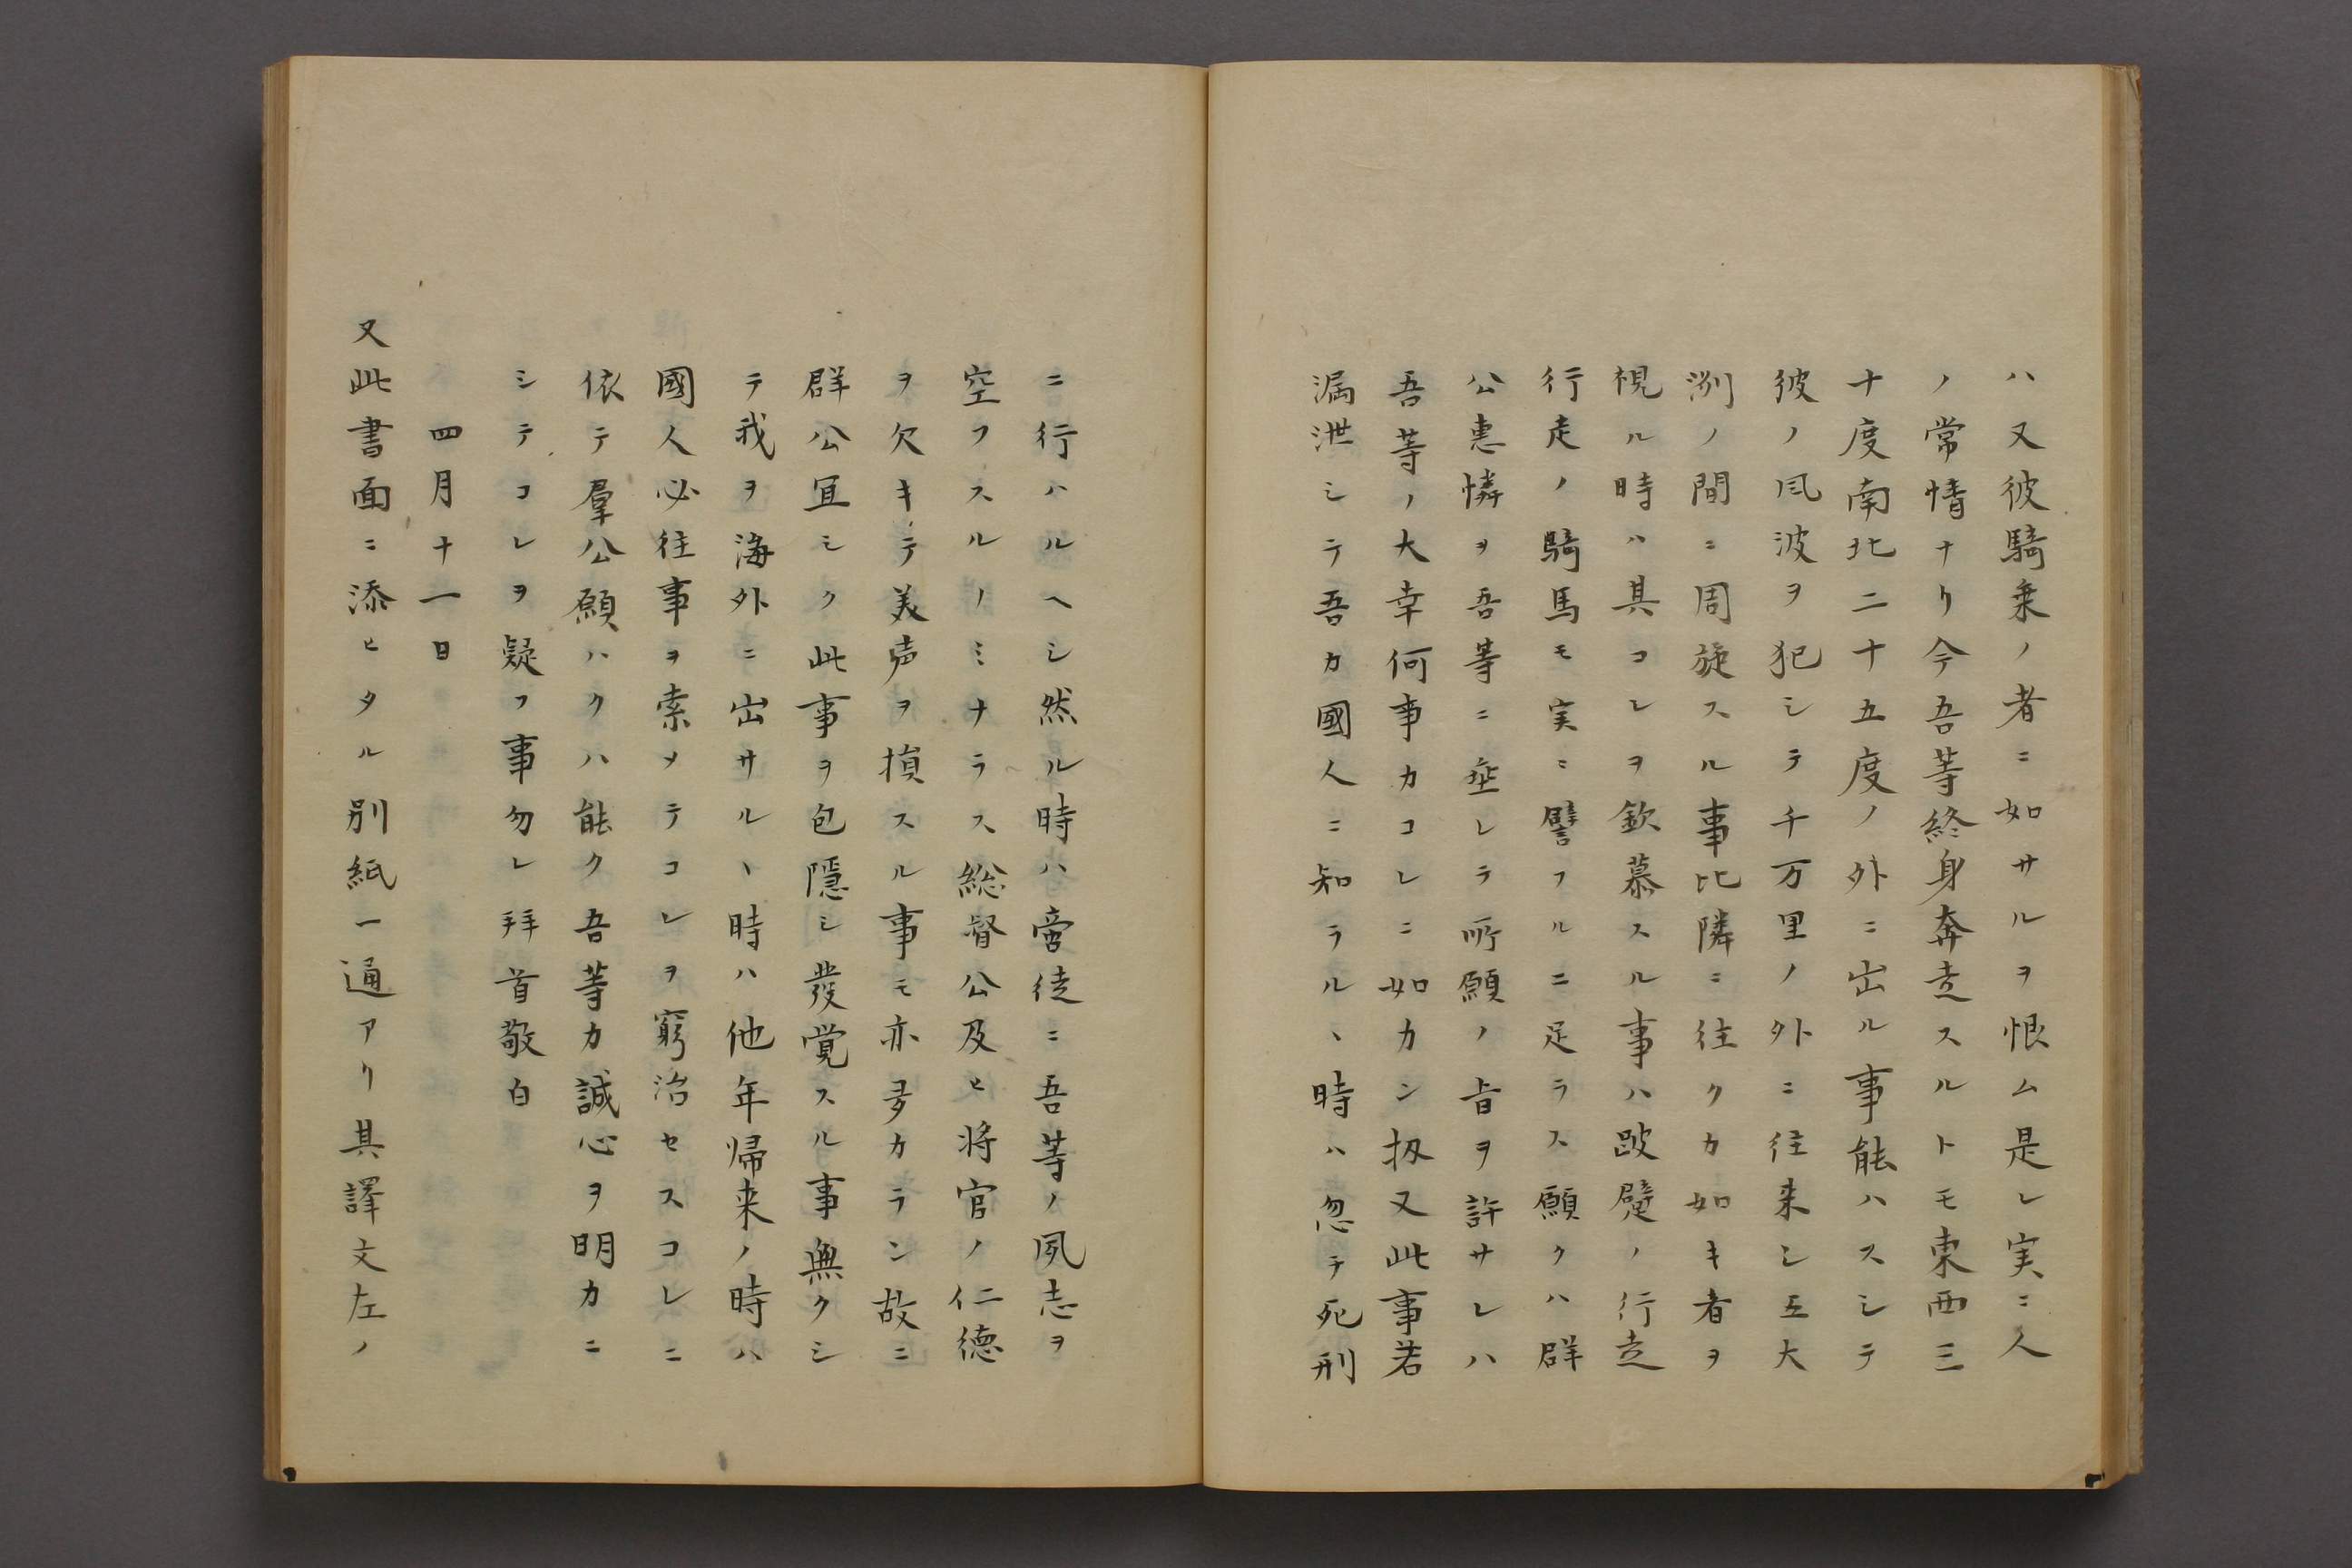 ハ又彼騎乗ノ者ニ如サルヲ恨ム是レ実ニ人
ノ常情ナリ今吾等終身奔走スルトモ東西三
十度南北二十五度ノ外ニ出ル事能ハスシテ
彼ノ風波ヲ犯シテ千万里ノ外ニ往来シ五大
洌ノ間ニ周旋スル事比隣ニ往クカ如キ者ヲ
視ル時ハ其コレヲ欽慕スル事ハ跛躄ノ行走
行走ノ騎馬モ実ニ譬フルニ足ラス願クハ群
公惠憐ヲ吾等ニ垂レテ所願ノ旨ヲ許サレハ
吾等ノ大幸何事カコレニ如カン扨又此事若
漏泄シテ吾カ國人ニ知ラルヽ時ハ忽チ死刑
ニ行ハルヘシ然ル時ハ啻徒ニ吾等ノ夙志ヲ
空フスルノミナラス総督公及ヒ将官ノ仁徳
ヲ欠キテ美声ヲ損スル事モ亦多カラン故ニ
群公宜シク此事ヲ包隱シ發覚スル事無クシ
テ我ヲ海外ニ出サルヽ時ハ他年帰来ノ時ハ
國人必往事ヲ索メテコレヲ窮治セスコレニ
依テ羣公願ハクハ能ク吾等カ誠心ヲ明カニ
シテコレヲ疑フ事勿レ拜首敬白
四月十一日
又此書面ニ添ヒタル別紙一通アリ其譯文左ノ